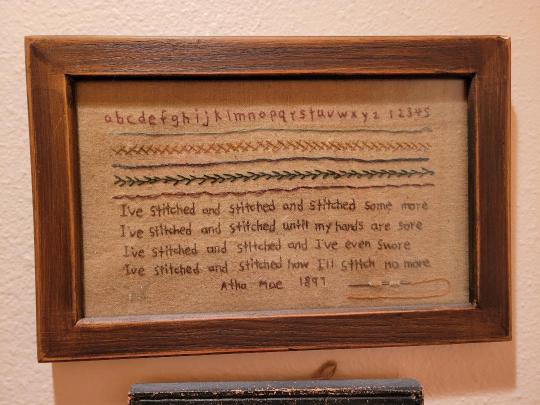 abcdefghijklmnopqrstuvwxyz 12345
I've stitched and stitched and stitched some more
I've stitched and stitched until my hands are sore
I've stitched and stitched and I've even swore
I've stitched and stitched now I'll stitch no more
Atha Mae 1897